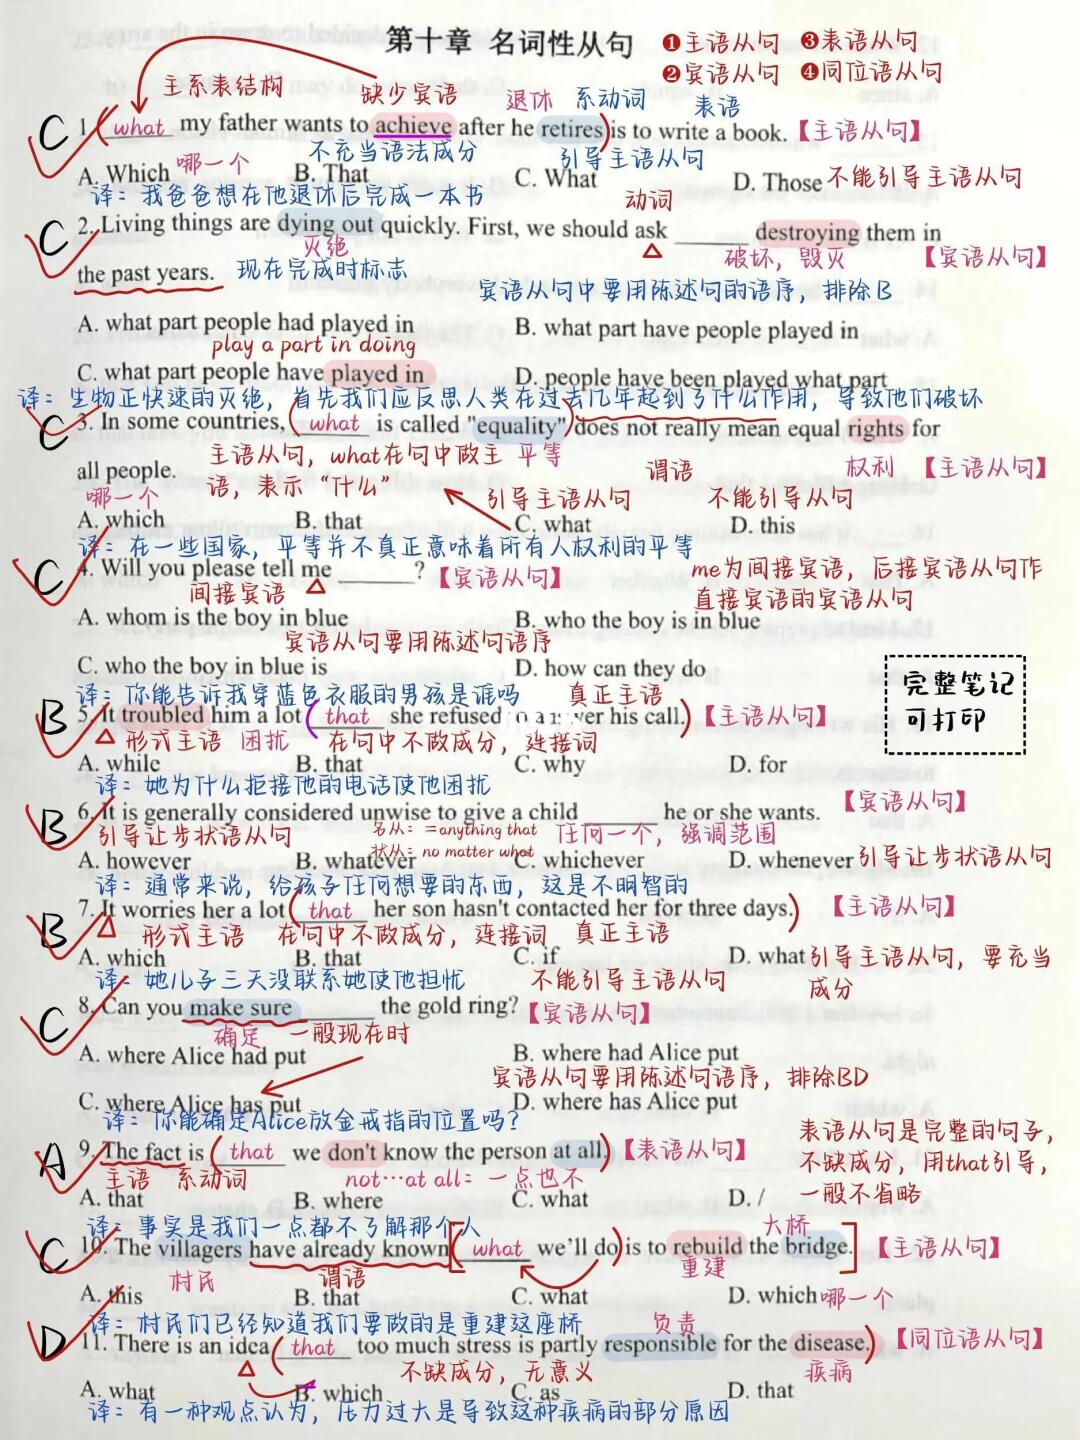 第十章 名词性从句
❶主语从句 ❸表语从句
❷宾语从句 ❹同位语从句
主系表结构 缺少宾语 退休 系动词 表语
C 1. (what my father wants to achieve after he retires) is to write a book.【主语从句】
不充当语法成分 引导主语从句
A. Which 哪一个 B. That C. What D. Those 不能引导主语从句
译：我爸爸想在他退休后完成一本书 动词
C 2. Living things are dying out quickly. First, we should ask ______ destroying them in
灭绝 破坏，毁灭 【宾语从句】
the past years. 现在完成时标志
宾语从句中要用陈述句的语序，排除B
A. what part people had played in B. what part have people played in
play a part in doing
C. what part people have played in D. people have been played what part
译：生物正快速的灭绝，首先我们应反思人类在过去几年起到了什么作用，导致他们破坏
C 3. In some countries, (what is called "equality") does not really mean equal rights for
主语从句，what在句中做主 平等 谓语 权利 【主语从句】
all people.
哪一个 语，表示“什么” 引导主语从句 不能引导从句
A. which B. that C. what D. this
译：在一些国家，平等并不真正意味着所有人权利的平等
C 4. Will you please tell me ______?【宾语从句】 me为间接宾语，后接宾语从句作
间接宾语 直接宾语的宾语从句
A. whom is the boy in blue B. who the boy is in blue
宾语从句要用陈述句语序
C. who the boy in blue is D. how can they do
完整笔记
可打印
译：你能告诉我穿蓝色衣服的男孩是谁吗 真正主语
B 5. It troubled him a lot (that she refused his call.)【主语从句】
形式主语 困扰 在句中不做成分，连接词
A. while B. that C. why D. for
译：她为什么拒接他的电话使他困扰
B 6. It is generally considered unwise to give a child ______ he or she wants. 【宾语从句】
引导让步状语从句 名从：=anything that 任何一个，强调范围
状从：no matter what
A. however B. whatever C. whichever D. whenever 引导让步状语从句
译：通常来说，给孩子任何想要的东西，这是不明智的
B 7. It worries her a lot (that her son hasn't contacted her for three days.) 【主语从句】
形式主语 在句中不做成分，连接词 真正主语
A. which B. that C. if D. what 引导主语从句，要充当
译：她儿子三天没联系她使他担忧 不能引导主语从句 成分
C 8. Can you make sure ______ the gold ring?【宾语从句】
确定 一般现在时
A. where Alice had put B. where had Alice put
宾语从句要用陈述句语序，排除BD
C. where Alice has put D. where has Alice put
译：你能确定Alice放金戒指的位置吗？
A 9. The fact is (that we don't know the person at all.)【表语从句】 表语从句是完整的句子，
主语 系动词 not…at all：一点也不 不缺成分，用that引导，
A. that B. where C. what D. / 一般不省略
译：事实是我们一点都不了解那个人 大桥
C 10. The villagers have already known [(what we'll do) is to rebuild the bridge.] 【主语从句】
村民 谓语 重建
A. this B. that C. what D. which 哪一个
译：村民们已经知道我们要做的是重建这座桥 负责
D 11. There is an idea (that too much stress is partly responsible for the disease.) 【同位语从句】
不缺成分，无意义 疾病
A. what B. which C. as D. that
译：有一种观点认为，压力过大是导致这种疾病的部分原因